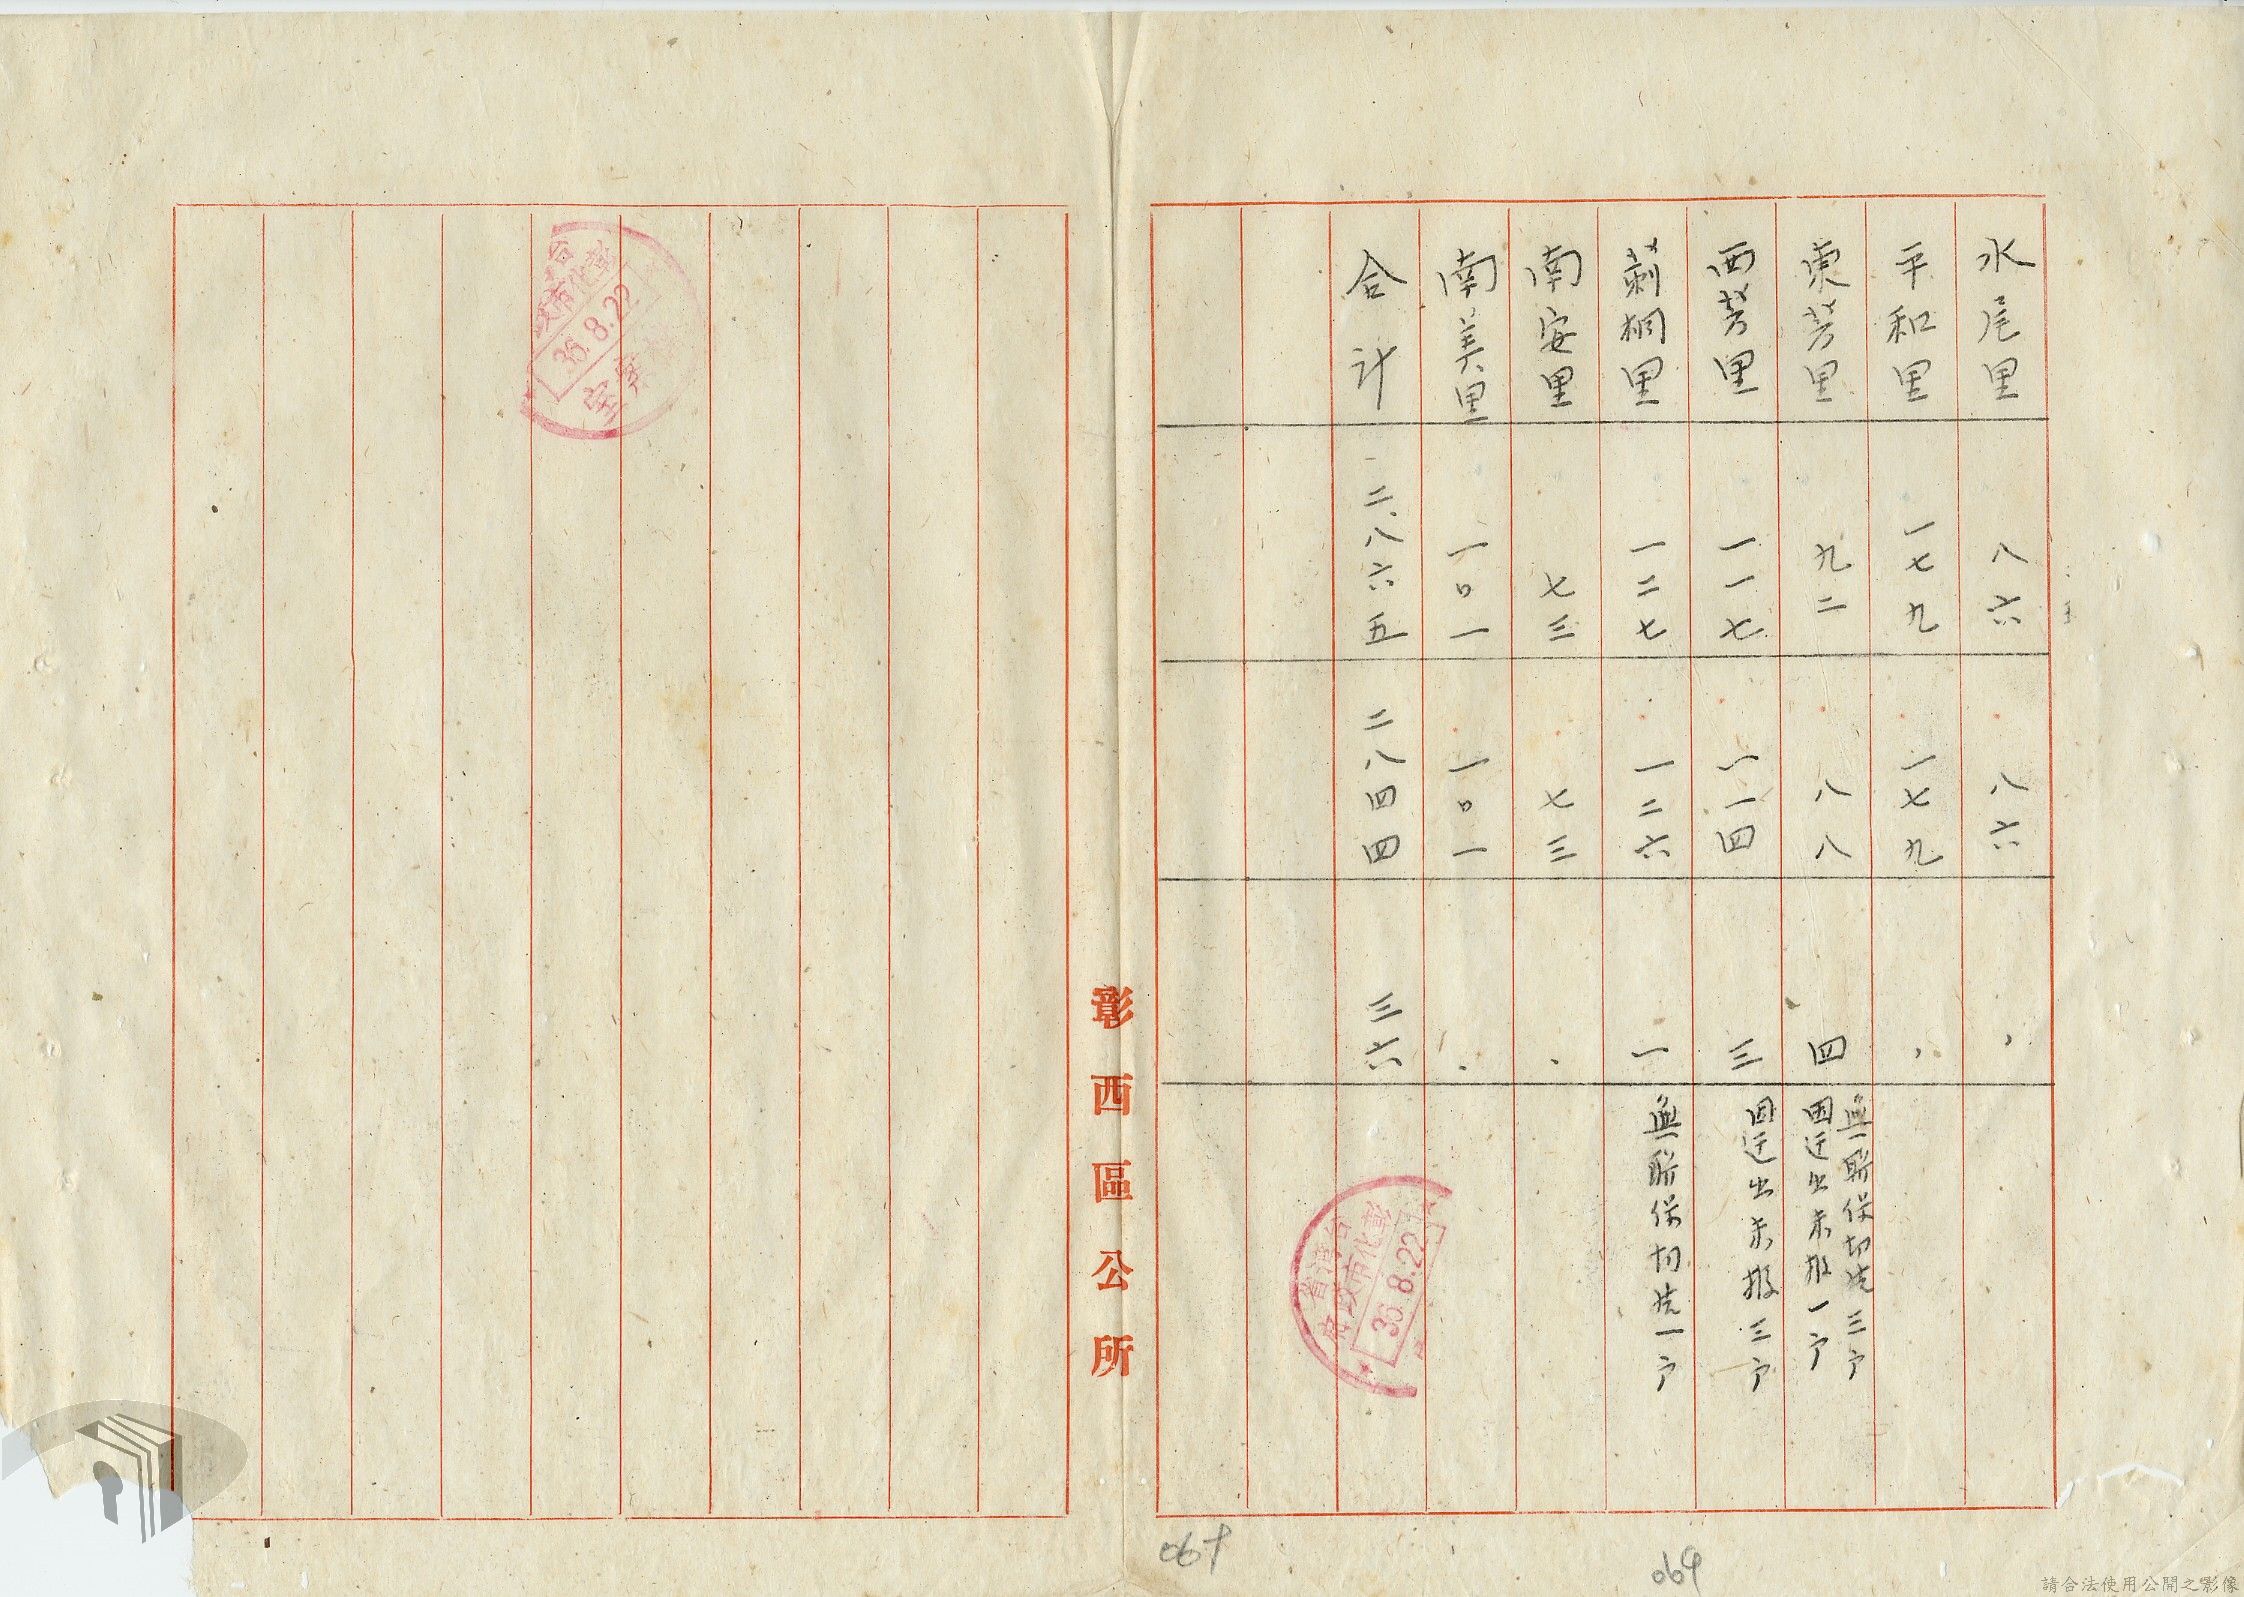 水尾里 八六 八六 、
平和里 一七九 一七九 、
東芳里 九二 八八 四 無聯保切結三户
因迁出未报一户
西芳里 一一七 一一四 三 因迁出未报三户
莿桐里 一二七 一二六 一 無聯保切結一户
南安里 七三 七三 、
南美里 一〇一 一〇一 、
合計 二、八六五 二八四四 三六
台灣省
彰化市政府
36.8.22
彰西區公所
彰化市政
36.8.22
檔案室
067
069
請合法使用公開之影像